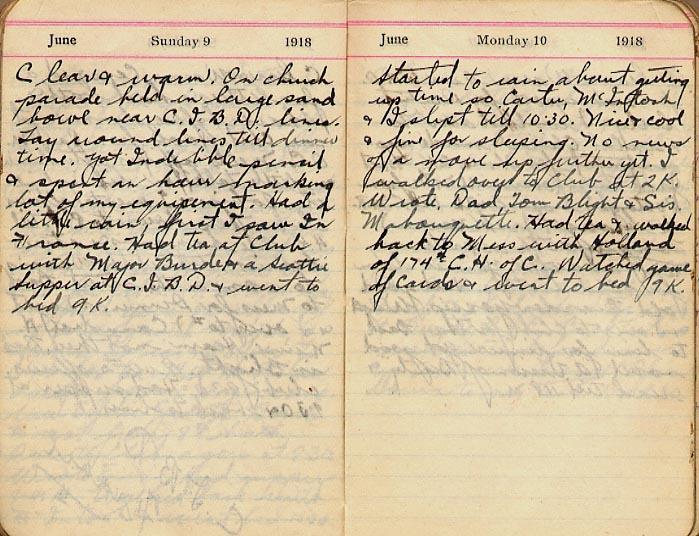 June Sunday 9 1918
Clear & warm. On church
parade held in large sand
bowl near C.I.B.D. lines.
Lay round lines till dinner
time. Got Indelible pencil
& spent an hour marking
lot of my equipment. Had a
little rain, first I saw In
France. Had tea at Club
with Major Burde & a Scottie
Supper at C.I.B.D. & went to
bed 9 K.
June Monday 10 1918
Started to rain about getting
up time so Carter, McIntosh
& I slept till 10.30. Nice & cool
& fine for sleeping. No news
of a move up further yet. I
walked over to Club at 2 K.
Wrote, Dad, Tom Blight & Sis.
Had tea & walked
back to Mess with Holland
of 174th C.H. of C. Watched game
of Cards & went to bed 9 K.